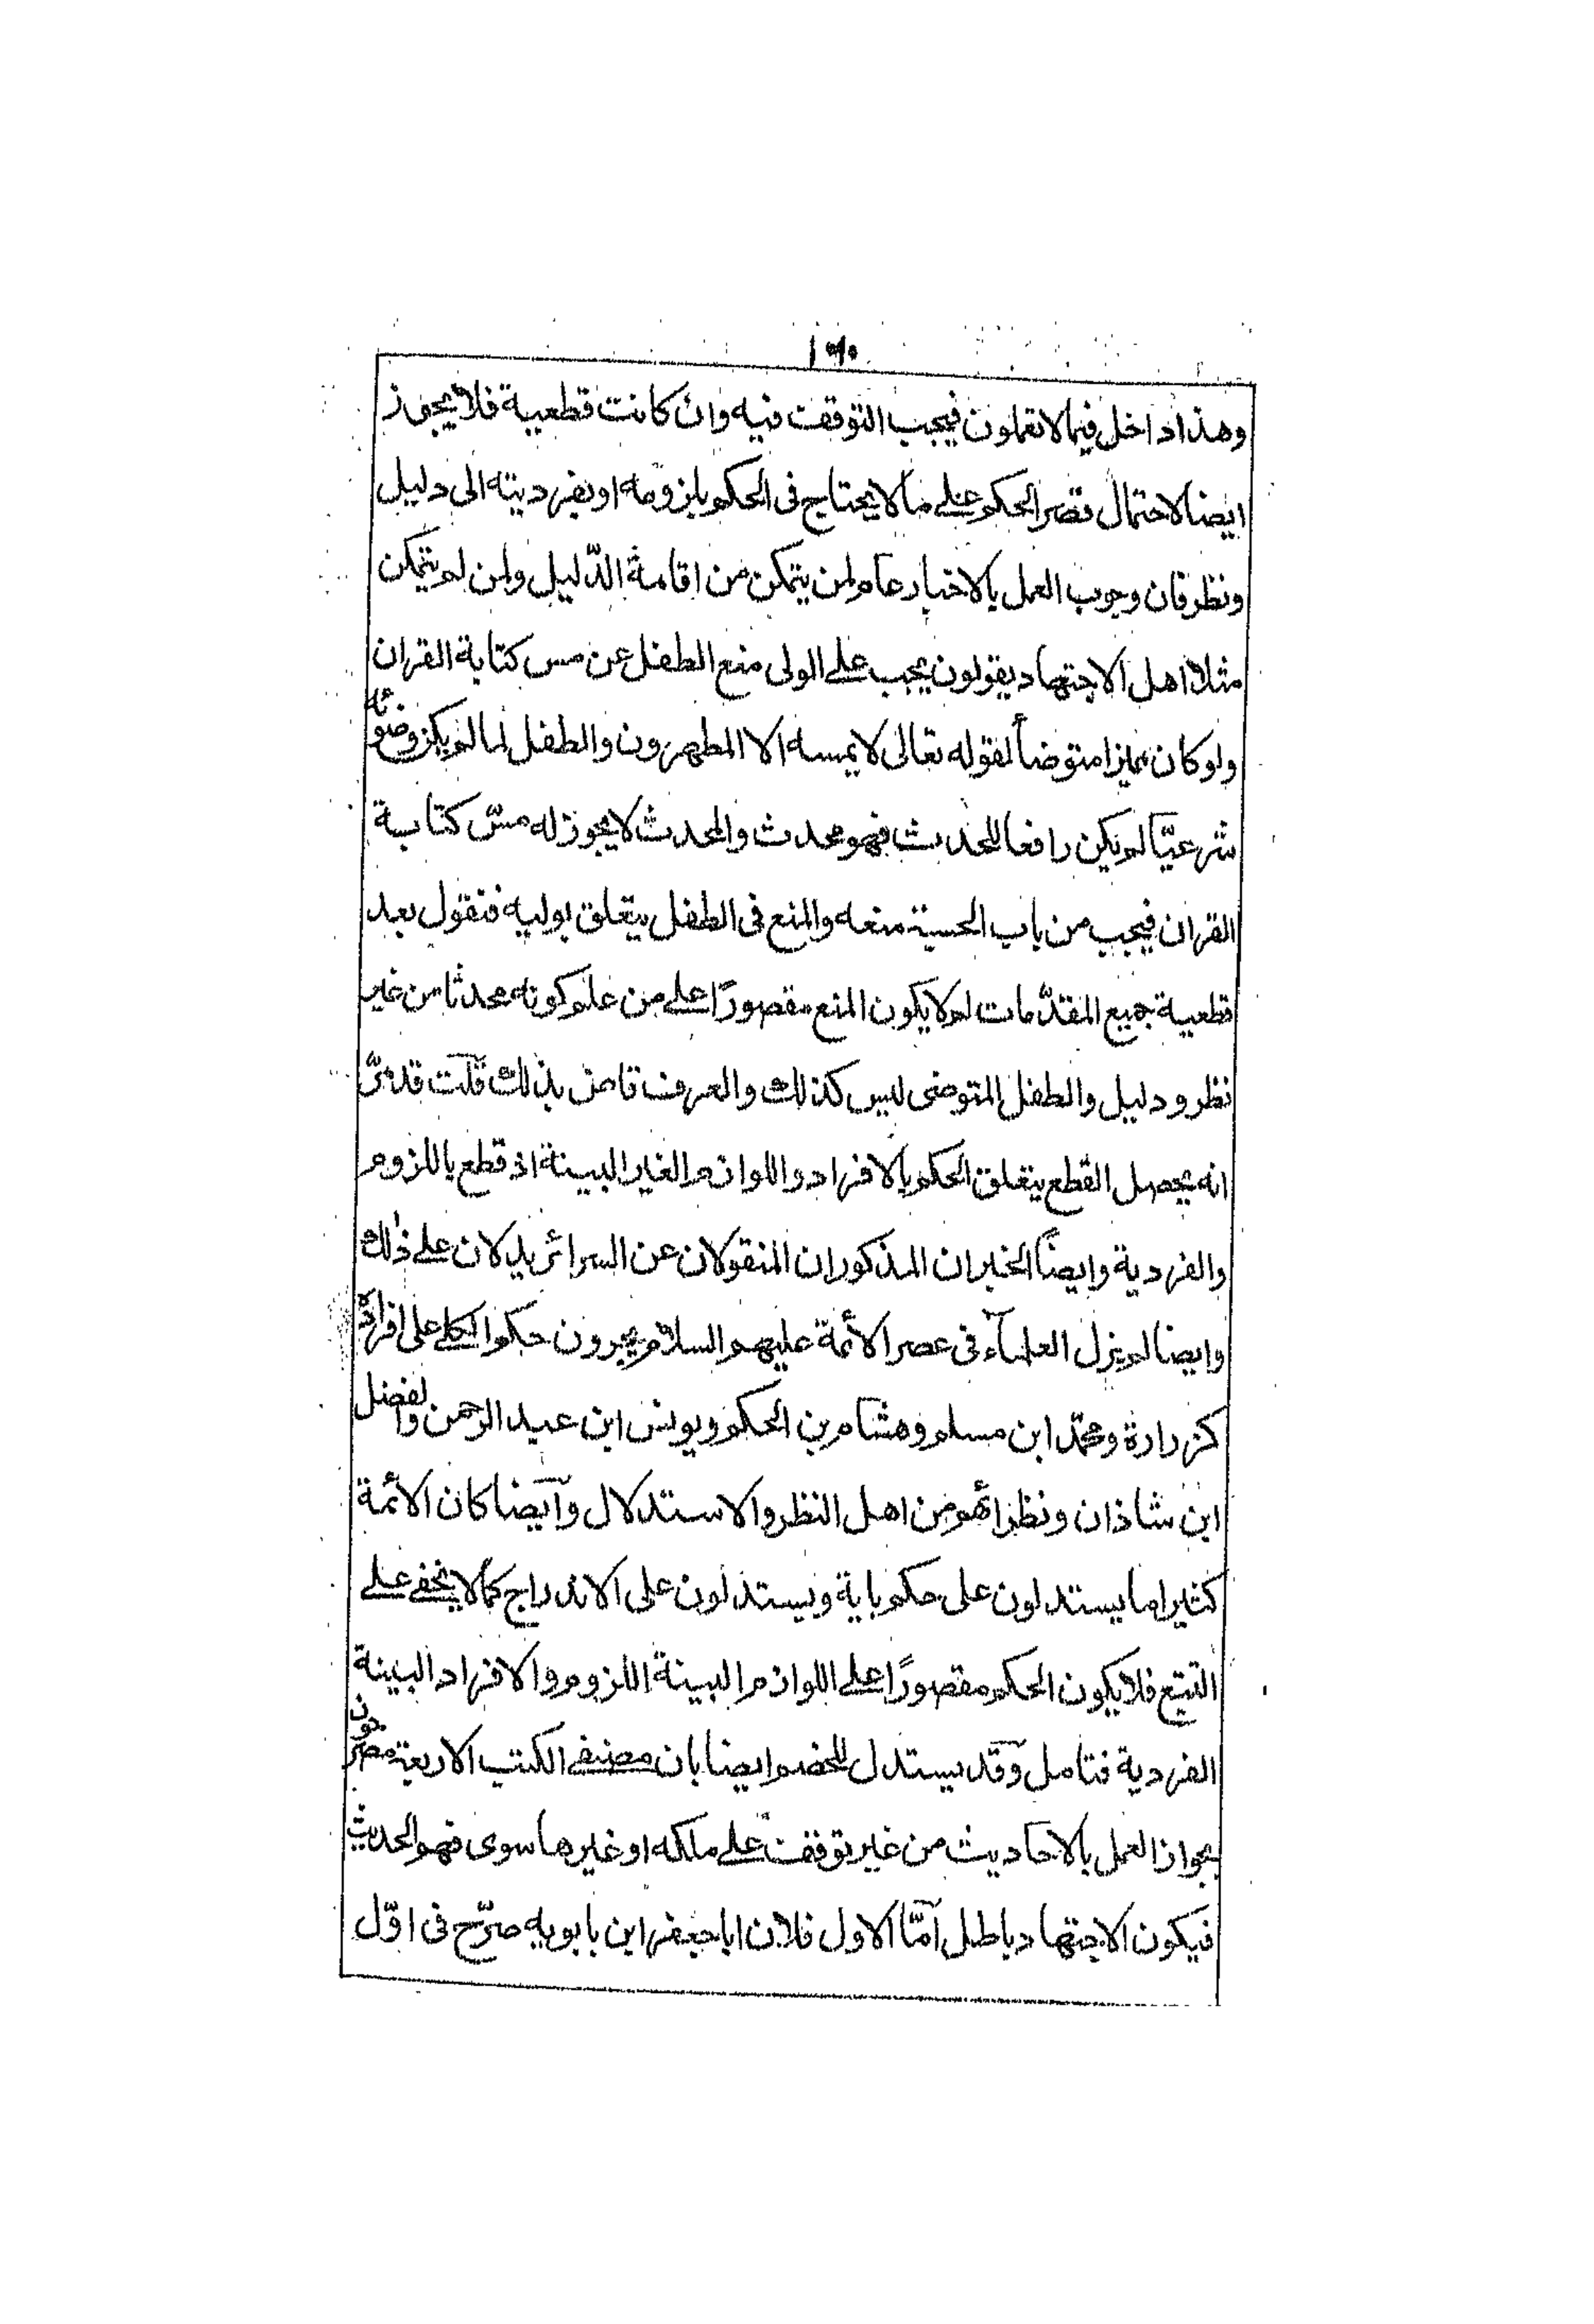 وهذا داخل فيما لا تعلمون فيجب التوقف فيه وان كانت قطعية فلا يجوز
ايضا لاحتمال قصر الحكم على ما لا يحتاج فى الحكم بلزومه او بفرديته الى دليل
ونظر فان وجوب العمل بالاخبار عام لمن يتمكن من اقامة الدّليل ولمن لم يتمكن
مثلا اهل الاجتهاد يقولون يجب على الولى منع الطفل عن مس كتابة القران
ولو كان مميزا متوضأ لقوله تعالى لا يمسه الا المطهرون والطفل لما لم يكن وضوئه
شرعيّا لم يكن رافعا للحدث فهو محدث والمحدث لا يجوز له مسّ كتابة
القران فيجب من باب الحسبة منعه والمنع فى الطفل يتعلق بوليه فنقول بعد
قطعية جميع المقدّمات لم لا يكون المنع مقصورًا على من علم كونه محدثا من غير
نظر ودليل والطفل المتوضى ليس كذلك والعرف قاض بذلك قلت قد مرّ
انه يحصل القطع بتعلق الحكم بالافراد واللوازم الغير البينة اذ قطع باللزوم
والفردية وايضًا الخبران المذكوران المنقولان عن السرائر يدلان على ذلك
وايضا لم يزل العلماء فى عصر الأئمة عليهم السلام يجرون حكم الكلى على افراده
كزرارة ومحمّد ابن مسلم وهشام بن الحكم ويونس ابن عبد الرحمن والفضل
ابن شاذان ونظرائهم من اهل النظر والاستدلال وآيضا كان الائمة
كثيرا ما يستدلون على حكم باية ويستدلون على الاندراج كما لا يخفى على
التتبع فلا يكون الحكم مقصورًا على اللوازم البينة اللزوم والافراد البينة
الفردية فتامل وقد يستدل للخصم ايضا بان مصنفى الكتب الاربعة مصرحون
بجواز العمل بالاحاديث من غير توقف على ملكه او غيرها سوى فهم الحديث
فيكون الاجتهاد باطل آمّا الاول فلان ابا جعفر ابن بابويه صرّح فى اوّل